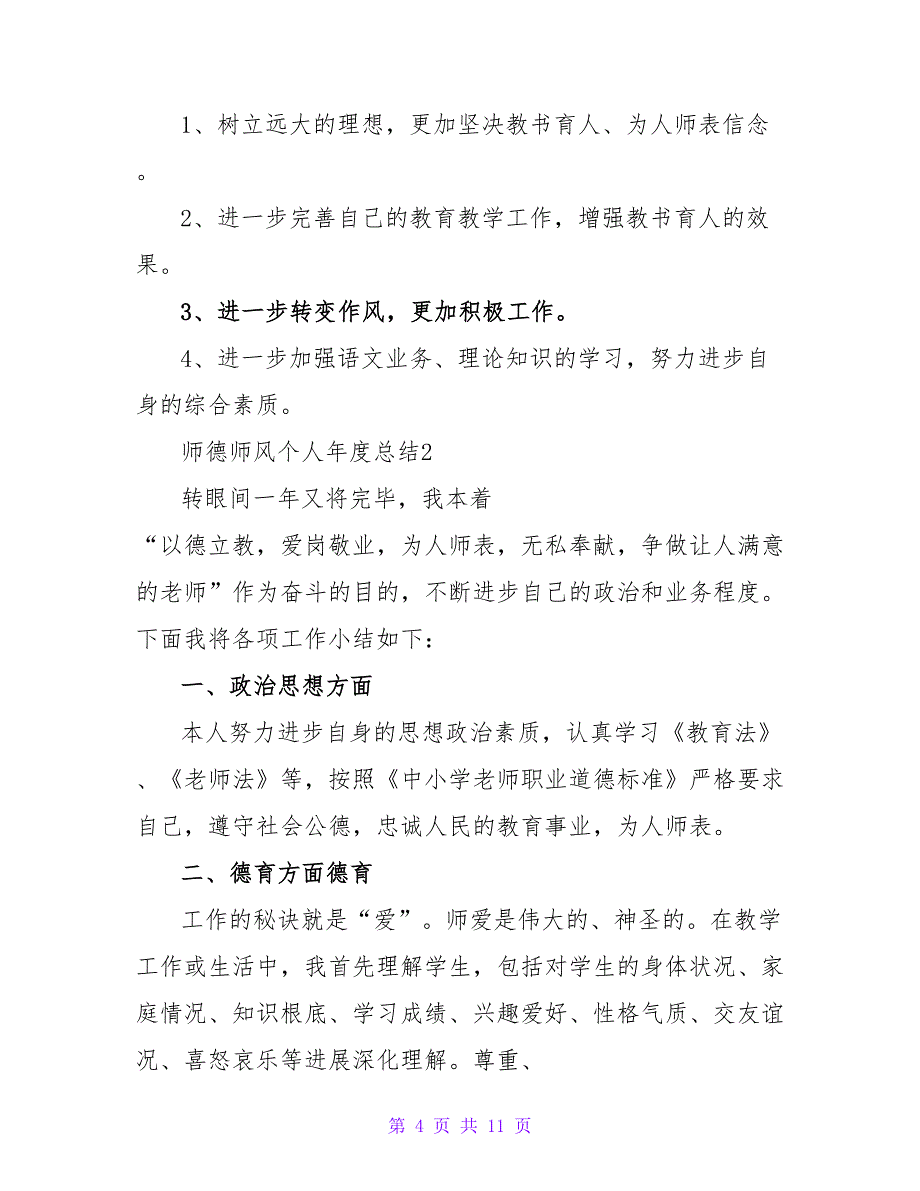 1、树立远大的理想，更加坚决教书育人、为人师表信念
。
2、进一步完善自己的教育教学工作，增强教书育人的效
果。
3、进一步转变作风，更加积极工作。
4、进一步加强语文业务、理论知识的学习，努力进步自
身的综合素质。
师德师风个人年度总结2
转眼间一年又将完毕，我本着
“以德立教，爱岗敬业，为人师表，无私奉献，争做让人满意
的老师”作为奋斗的目的，不断进步自己的政治和业务程度。
下面我将各项工作小结如下：
一、政治思想方面
本人努力进步自身的思想政治素质，认真学习《教育法》
、《老师法》等，按照《中小学老师职业道德标准》严格要求
自己，遵守社会公德，忠诚人民的教育事业，为人师表。
二、德育方面德育
工作的秘诀就是“爱”。师爱是伟大的、神圣的。在教学
工作或生活中，我首先理解学生，包括对学生的身体状况、家
庭情况、知识根底、学习成绩、兴趣爱好、性格气质、交友谊
况、喜怒哀乐等进展深化理解。尊重、
第 4 页 共 11 页